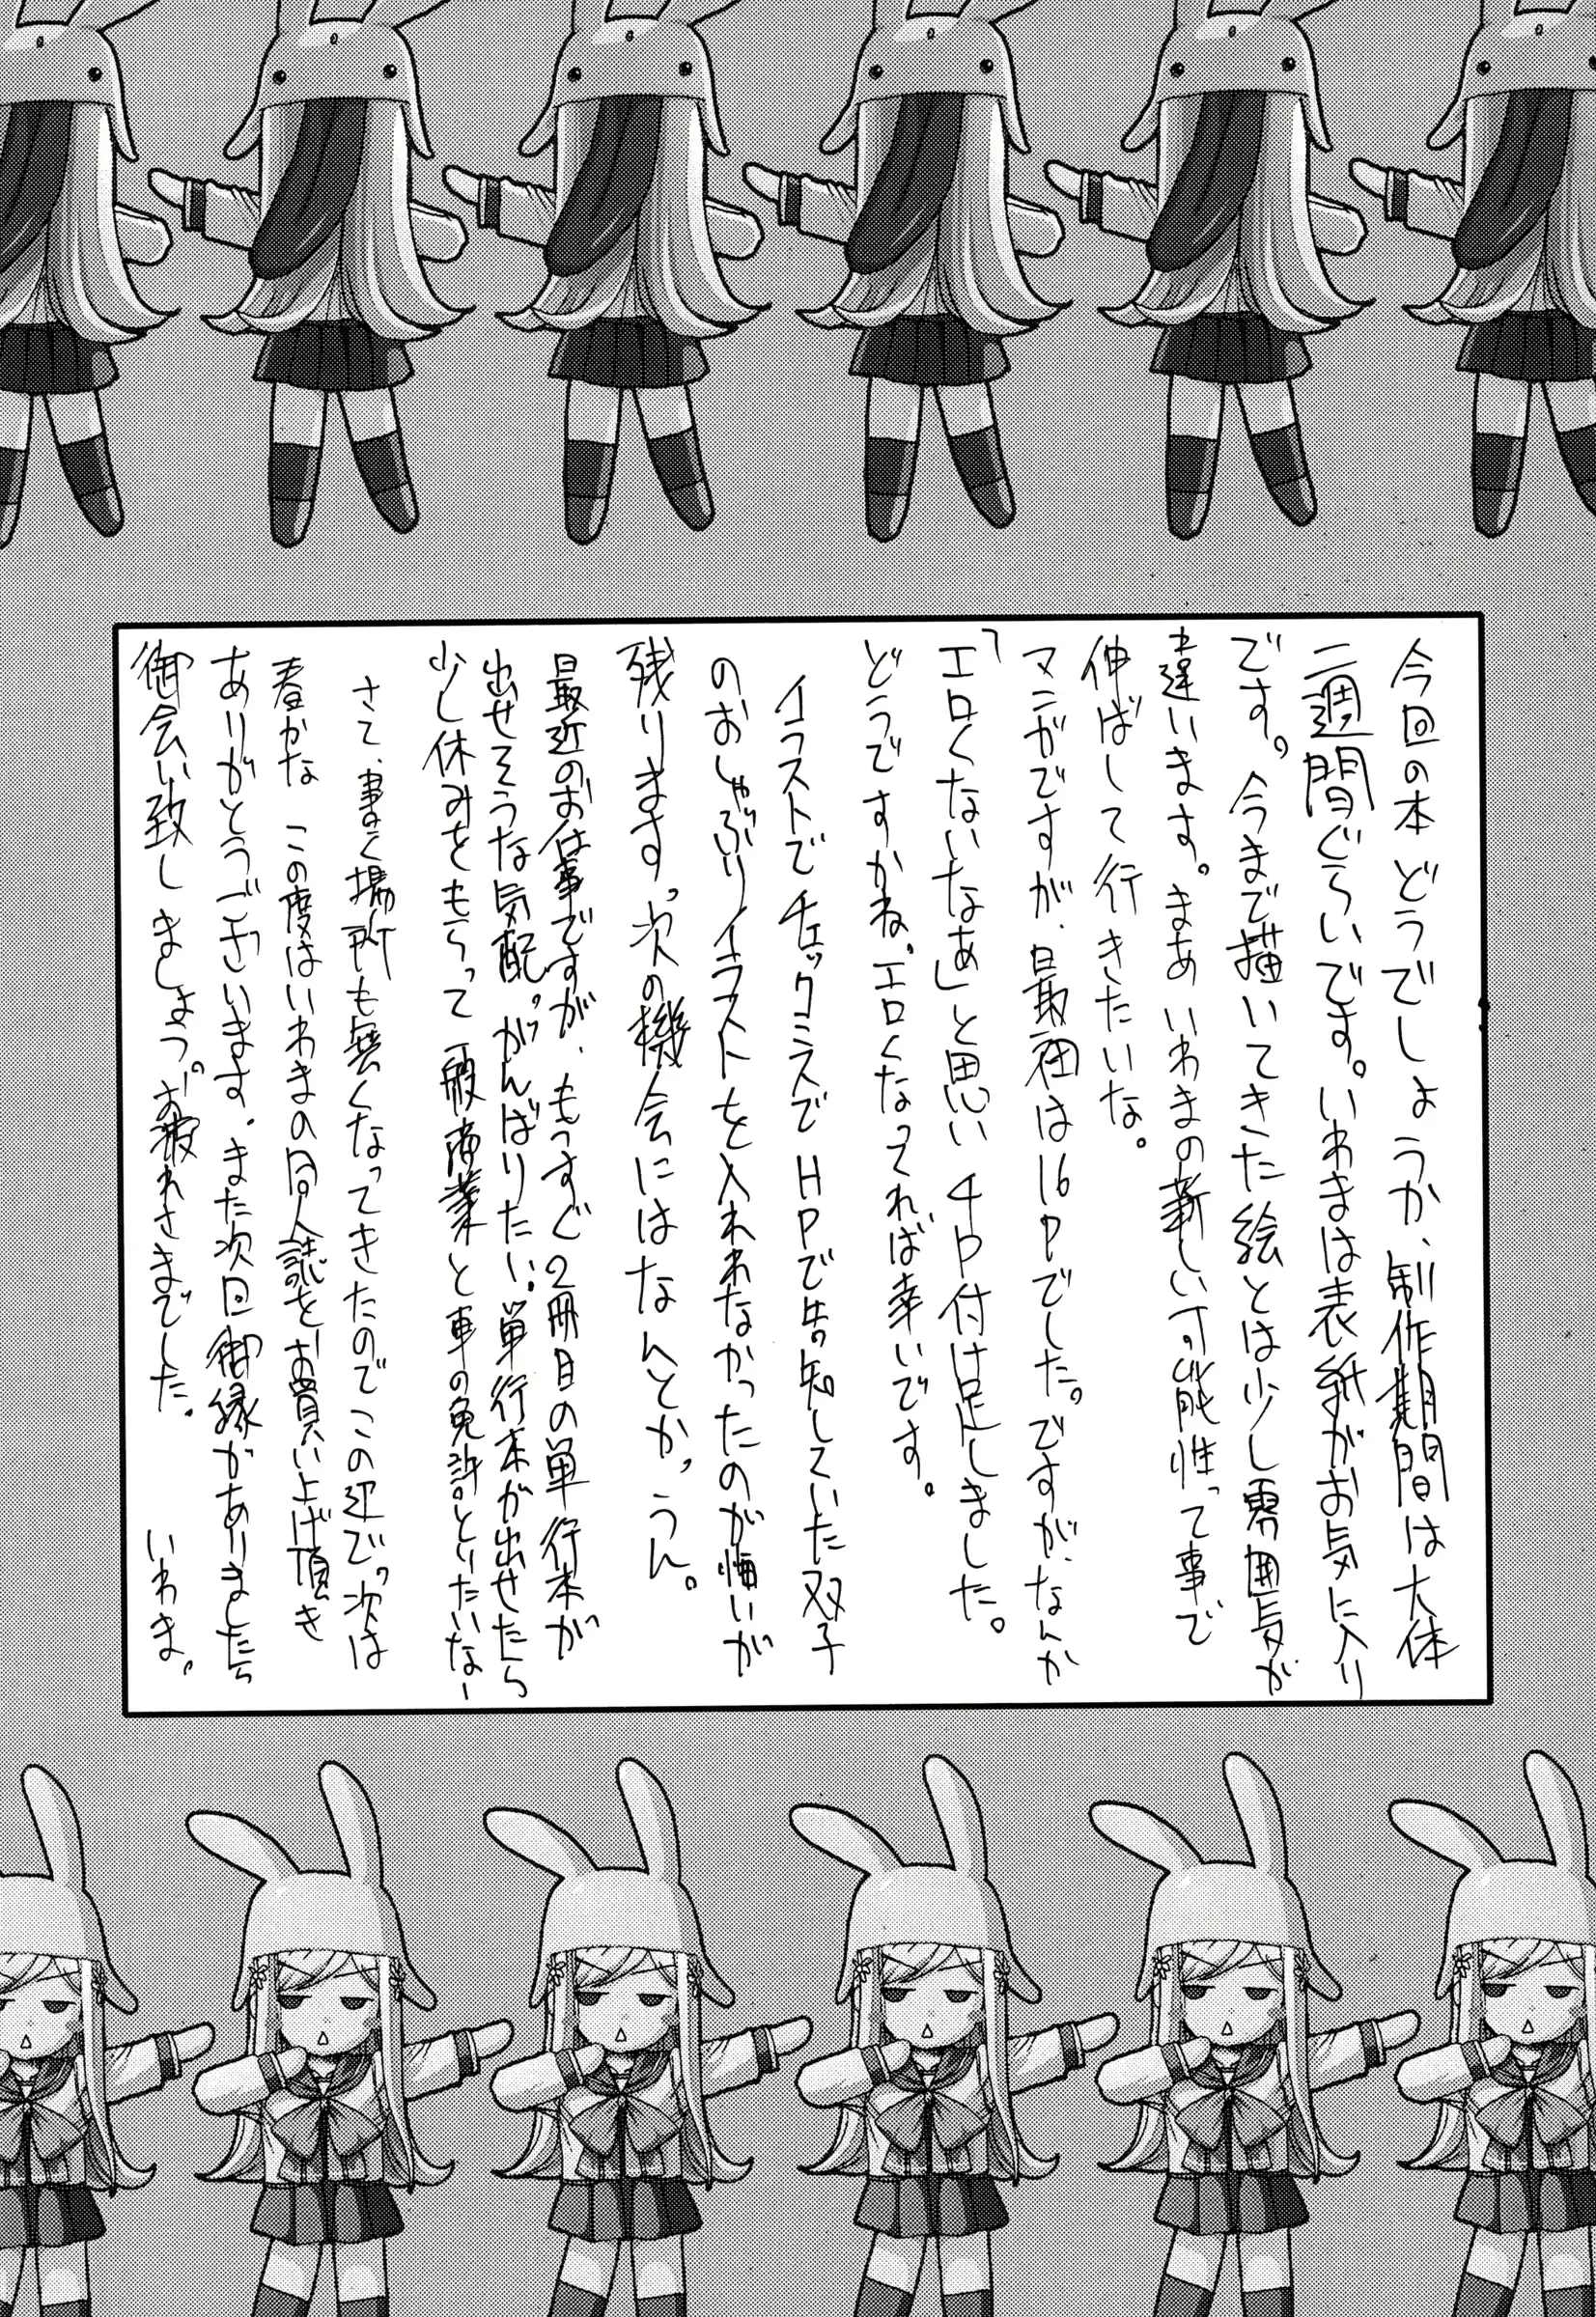 今回の本 どうでしょうか、制作期間は大体
二週間ぐらいです。いわまは表紙がお気に入り
です。今まで描いてきた絵とは少し雰囲気が
違います。まあいわまの新しい可能性って事で
伸ばして行きたいな。
マンガですが、最初は16Pでした。ですが、なんか
「エロくないなぁ」と思い4P付け足しました。
どうですかね。エロくなってれば幸いです。
イラストでチェックミスでHPで告知していた双子
のおしゃぶりイラストを入れれなかったのが悔いが
残ります。次の機会にはなんとか。うん。
最近のお仕事ですが、もうすぐ2冊目の単行本が
出せそうな気配。がんばりたい。単行本が出せたら
少し休みをもらって一般商業と車の免許とりたいなー
さて、書く場所も無くなってきたのでこの辺で。次は
春かな この度はいわまの同人誌をお買い上げ頂き
ありがとうございます。また次回御縁がありましたら
御会い致しましょう。お疲れさまでした。
いわま。